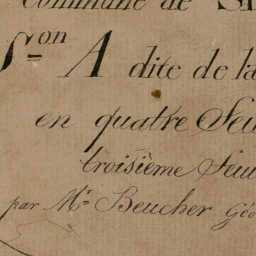 Commune de
S.on A dite de la
en quatre Feui
troisième Feui
par Mr. Beucher Géo